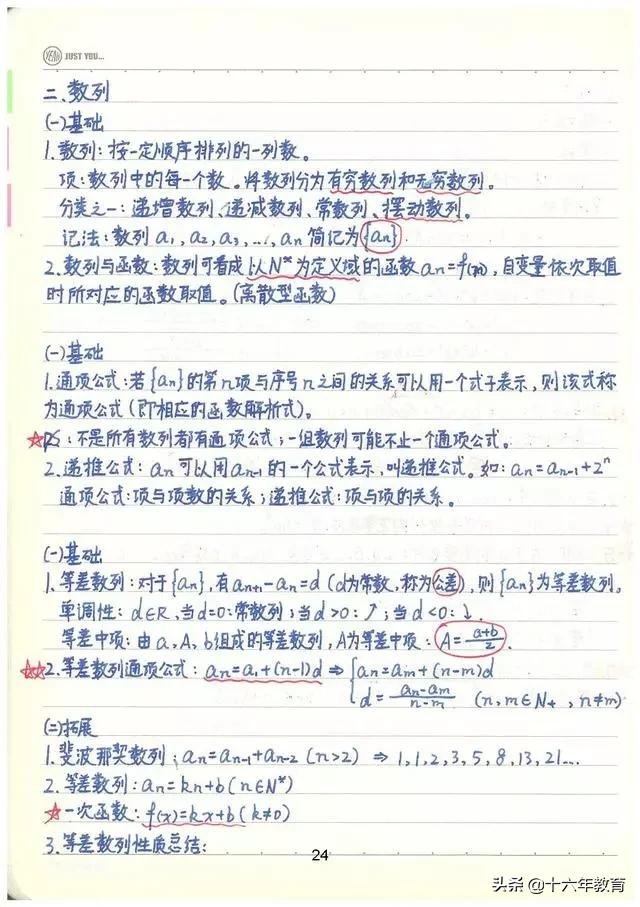 YEAH JUST YOU...
二、数列
(一)基础
1.数列:按一定顺序排列的一列数。
项:数列中的每一个数。将数列分为有穷数列和无穷数列。
分类之一:递增数列、递减数列、常数列、摆动数列。
记法:数列a₁, a₂, a₃, ..., aₙ 简记为{aₙ}
2.数列与函数:数列可看成以N*为定义域的函数aₙ=f(n),自变量依次取值
时所对应的函数取值。(离散型函数)
(一)基础
1.通项公式:若{aₙ}的第n项与序号n之间的关系可以用一个式子表示,则该式称
为通项公式(即相应的函数解析式)。
☆:不是所有数列都有通项公式;一组数列可能不止一个通项公式。
2.递推公式:aₙ可以用aₙ₋₁的一个公式表示,叫递推公式。如:aₙ=aₙ₋₁+2ⁿ
通项公式:项与项数的关系;递推公式:项与项的关系。
(一)基础
1.等差数列:对于{aₙ},有aₙ₊₁-aₙ=d(d为常数,称为公差),则{aₙ}为等差数列。
单调性:d∈R,当d=0:常数列;当d>0:↗;当d<0:↓.
等差中项:由a,A,b组成的等差数列,A为等差中项:A=(a+b)/2.
☆☆2.等差数列通项公式:aₙ=a₁+(n-1)d ⇒ {aₙ=aₘ+(n-m)d
d=(aₙ-aₘ)/(n-m) (n,m∈N₊,n≠m)
(二)拓展
1.斐波那契数列:aₙ=aₙ₋₁+aₙ₋₂(n>2) ⇒ 1,1,2,3,5,8,13,21...
2.等差数列:aₙ=kn+b(n∈N*)
☆一次函数:f(x)=kx+b(k≠0)
3.等差数列性质总结:
24
头条@十六年教育